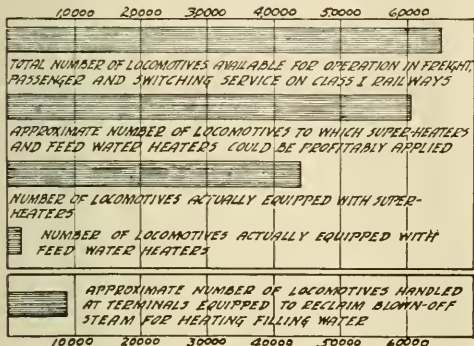 10000 20000 30000 40000 50000 60000
TOTAL NUMBER OF LOCOMOTIVES AVAILABLE FOR OPERATION IN FREIGHT,
PASSENGER AND SWITCHING SERVICE ON CLASS I RAILWAYS
APPROXIMATE NUMBER OF LOCOMOTIVES TO WHICH SUPER-HEATERS
AND FEED WATER HEATERS COULD BE PROFITABLY APPLIED
NUMBER OF LOCOMOTIVES ACTUALLY EQUIPPED WITH SUPER-
HEATERS
NUMBER OF LOCOMOTIVES ACTUALLY EQUIPPED WITH
FEED WATER HEATERS
APPROXIMATE NUMBER OF LOCOMOTIVES HANDLED
AT TERMINALS EQUIPPED TO RECLAIM BLOWN-OFF
STEAM FOR HEATING FILLING WATER
10000 20000 30000 40000 50000 60000